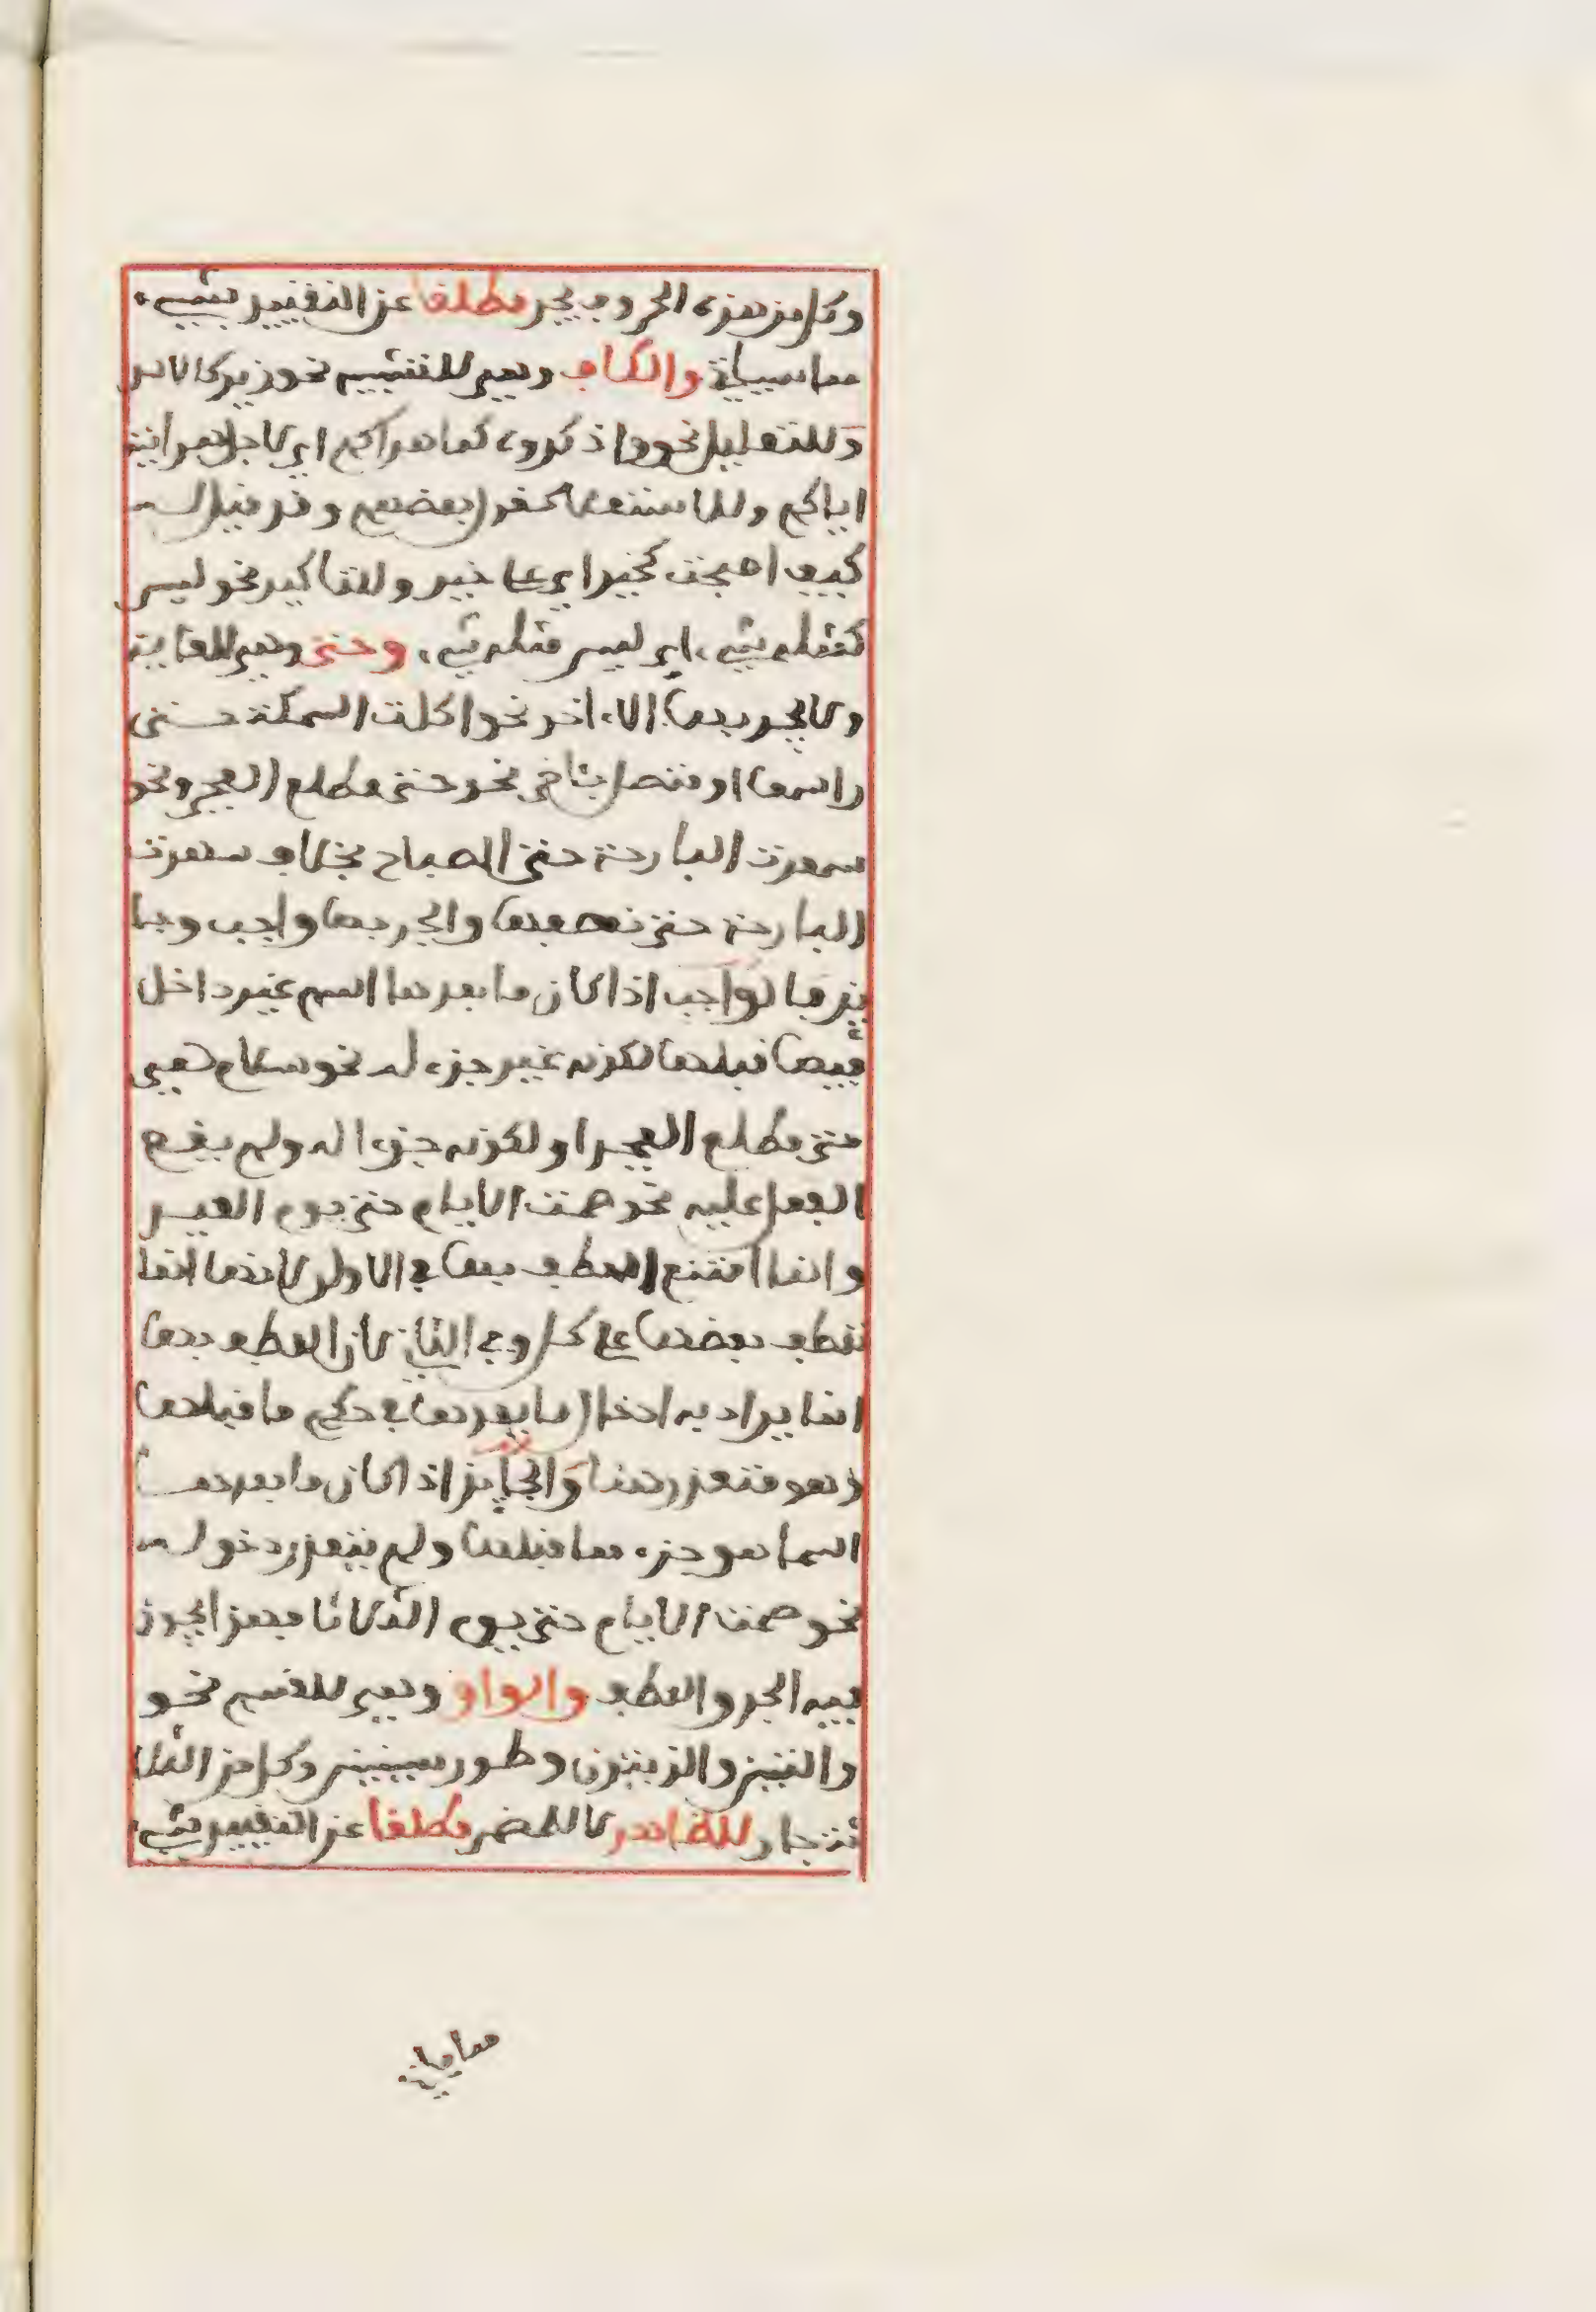 وكل من هذه الحروف يجر مطلقا عن التقييد بشيء
مما سياتي والكاف وهي للتشبيه نحو زيد كالاسد
وللتعليل نحو واذكروه كما هداكم اي لاجل هدايته
اياكم وللاستعلاء كقول بعضهم وقد قيل له
كيف اصبحت كخير اي على خير وللتاكيد نحو ليس
كمثله شيء اي ليس مثله شيء وحتى وهي للغاية
ولا يجر بها الا ءاخر نحو اكلت السمكة حتى
راسها او متصل بآخر نحو حتى مطلع الفجر ونحو
سهرت البارحة حتى الصباح بخلاف سهرت
البارحة حتى نصفها والجر بها واجب وجا
يز فالواجب اذا كان ما بعدها اسم غير داخل
فيما قبلها لكونه غير جزء له نحو سلام هي
حتى مطلع الفجر او لكونه جزءا له ولم يقع
الفعل عليه نحو صمت الايام حتى يوم العيد
وانما امتنع العطف بها في الاول لانها انما
تعطف بعضها على كل وفي الثاني لان العطف بها
انما يراد به ادخال ما بعدها في حكم ما قبلها
وهو متعذر هنا والجايز اذا كان ما بعدها
اسما هو جزء مما قبلها ولم يتعذر دخوله
نحو صمت الايام حتى يوم الثلاثا فهذا يجوز
فيه الجر والعطف والواو وهي للقسم نحو
والتين والزيتون وطور سينين وكل من الثلا
ثة جار للظاهر لا للمضمر مطلقا عن التقييد بشيء
مما ياتي